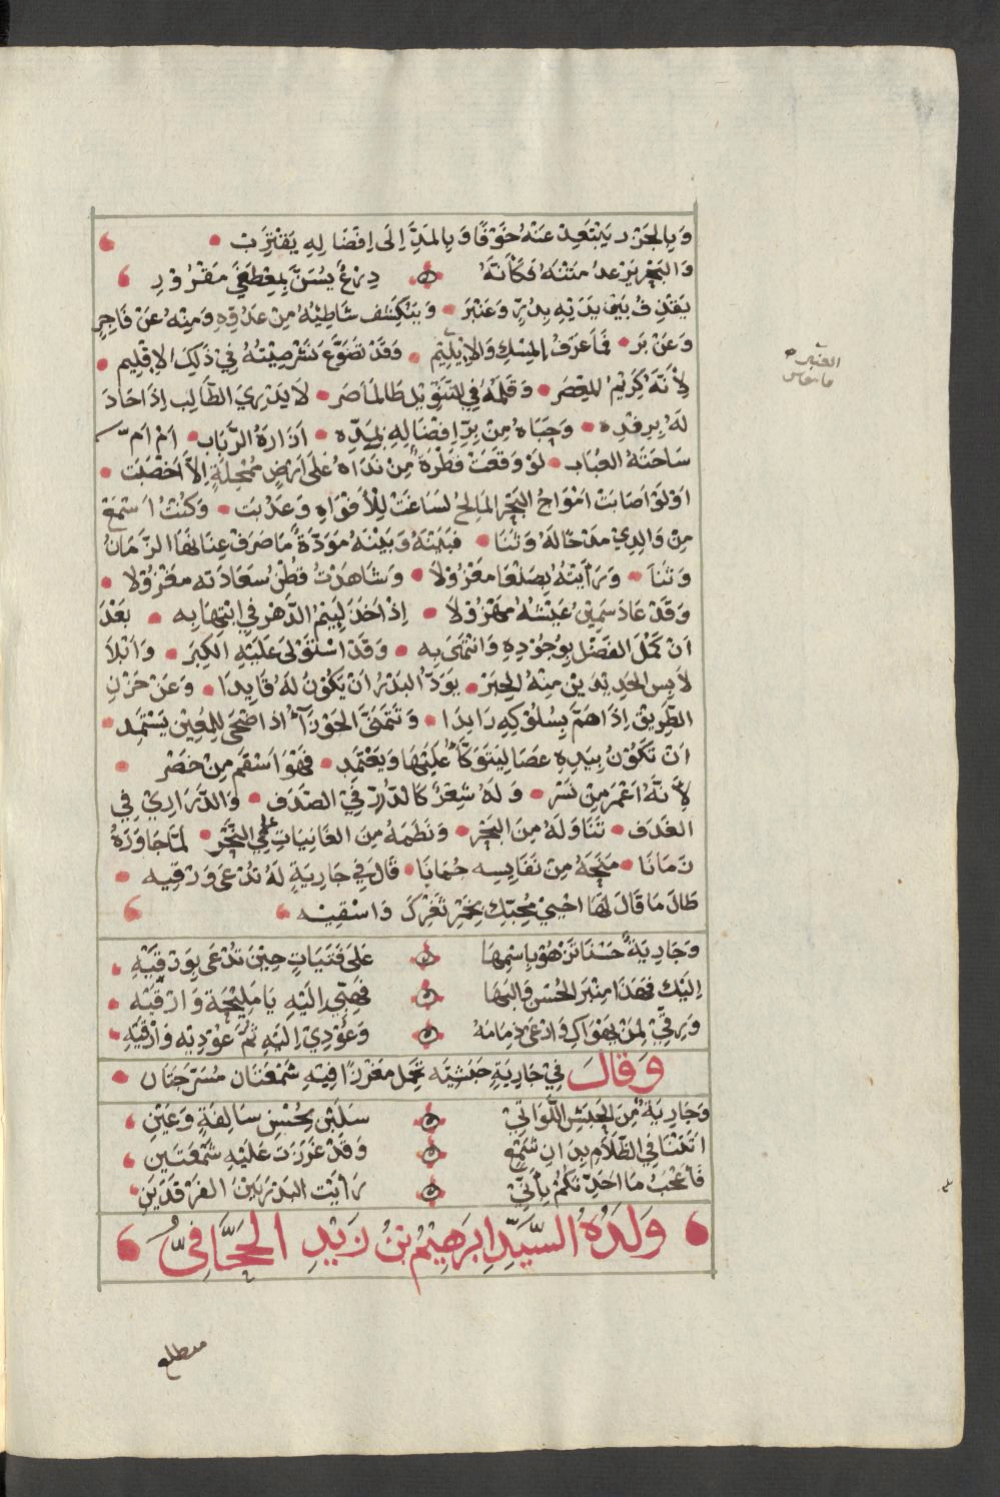 وَبِالجَزْر يَبْتَعِدْ عَنْهُ خَوْفًا وَبِالمَدِّ اِلَى اِفْضَالِهِ يَقْتَرِبْ
وَالبَحْرُ يَرْعدُ مَتْنُهُ فَكَأَنَّهُ دِرْعٌ يُسَنُّ بِمِعْطَفَيْ مَقْرُوْرِ
يَقْذِفُ بَيْنَ يَدَيْهِ بِدُرٍّ وَعَنْبَرْ وَيَنْكَشِف شَاطِيْهُ مِنْ عَدُوِّهِ وَمِنْهُ عَنْ فَاجِرٍ
وَعَنْ بَرْ فَمَا عَرَفُ المِسْكِ وَالاِ وَقَدْ تَضَوَّعَ نَشْر صِيْتُهُ فِيْ ذَلِكَ الاِقْلِيم
لِأَنَّهُ كَرِيْمُ للعِصَر وَقَلَمُهُ فِي التَّنْوِيْل طَالمَا صَر لَا يَدْرِيْ الطَّالِب اِذَا حَادَ
لَهُ بِرِفْدِهِ وَحَبَاهُ مِنْ بِرِّ اِفْضَالِهِ بِمَدِّهِ اَدَارَةُ الرَّبَاب اَمْ اَمّ
سَاحَتَهُ العُبَاب لَوْ وَقَعَتْ قَطْرَةٌ مِنْ نَدَاهُ عَلَى اَرْضٍ مُمْحِلَةٍ اِلَّا اَخْصَبَت
اَوْ لَوْ اَصَابَتْ اَمْوَاجُ البَحْرِ المَالِحُ لَسَاغَتْ لِلْأَفْوَاهِ وَعَذُبَت وَكُنْتُ اَسْمَعُ
مِنْ وَالِدِيْ مَدْحًا لَهُ وَثَنَا فَبَيْنَهُ وَبَيْنَهُ مَوَدَّةً مَا صَرَفَ عِنَانَهَا الزَّمَانُ
وَثَنَا وَرَأَيْتُهُ بِصَنْعَا مَعْزُوْلَا وَشَاهَدْتُ قُطْنُ سَعَادَته مَغْزُوْلا
وَقَدْ عَادَ سَمِيْنُ عَيْشُهُ مَهْزُوْلَا اِذْ اَخَذَ لَيِيْمُ الدَّهْر فِي اِنْتِهَابِه بَعْدَ
اَنْ كَمُلَ الفَضْل بِوُجُوْدِهِ وَانْتَهَى بِه وَقَدْ اسْتَوْلَى عَلَيْهِ الكِبَر وَاَبْلَا
لَابِس الجَدِيْدَيْن مِنْهُ الحِبَرْ يَوَدُّ البَدْرُ اَنْ يَكُوْنُ لَهُ قَايِدَا وَعَنْ حَزْنِ
الطَّرِيْقْ اِذَا هَمَّ بِسُلُوْكِهِ ذَايِدَا وَتَتَمَنَّى الجَوْزَآءُ اذَا اضْحَى لِلمُعِيْن يَسْتَمِد
اَنْ تَكُوْنَ بِيَدِهِ عَصَا لِيَتَوَكَّأُ عَلَيْهَا وَيَعْتَمِد فَهْوَ اَسْقَم مِنْ خَصْر
لِأَنَّهُ اَعْمَر مِنْ نَسْر وَلَهُ شِعْرٌ كَالدُّرّ فِيْ الصَّدَف وَالدَّرَارِيْ فِي
الغَدَف تَنَاوَلَهُ مِنَ البَحْر وَنَظَمَهُ مِنَ الغَانِيَاتِ عَلَى النَّحْر لَمَّا جَاوَرَهُ
زَمَانَا مَنَحَهُ مِنْ نَفَايِسِه جُمَانَا قَالَ فِيْ جَارِيَةٍ لَهُ تُدْعَى وَرْقِيه
طَالَ مَا قَالَ لَهَا احْيِيْ مُحِبّكِ بِخَمْرِ ثَغْرِكْ وَاسْقِيْه
وَجَارِيَةٍ حَسْنَا تَزْهُوْ بِاسْمِهَا عَلَى فَتَيَاتٍ حِيْنَ تُدْعَى بِوَرْقِيَّهِ
اِلَيْك فَهَذَا مِنْبَر الحُسْن وَالبَهَا فَهِبِّي اِلَيْهِ يَا مَلِيْحَة وَارْقَيْه
وَرِقِّيْ لِمَنْ يَهْوَاكِ وَارْعَيْ ذِمَامَهُ وَعُوْدِيْ اِلَيْهِ ثُمَّ عَوِّذِيْهِ وَارْقِيْهِ
وَقَالَ فِيْ جَارِيَةٍ حَبَشِيَّه تَحْمِل مَغْرَزًا فِيْهِ شَمْعَتَان مُسَرَّجَتَان
وَجَارِيَةٌ مِنَ الحَبَشِ اللَّوَاتِيْ سَلَبْنَ بِحُسْنِ سَالِفَةٍ وَعَيْنِ
اَتَتْنَا فِي الظَّلَامِ بِدَانِ شَمْعٍ وَقَدْ غَرَزَتْ عَلَيْهِ شَمْعَتَيْنِ
فَأَعْجَبُ مَا اُحَدِّثُكُمْ بِأَنِّيْ رَأَيْت البَدْرَ بَيْنَ الفَرْقَدَيْنِ
وَلَدُهُ السَّيِّدِ اِبْرَهِيْمُ بْنُ زَيْدِ الجَحَّافِيُّ
العنبر